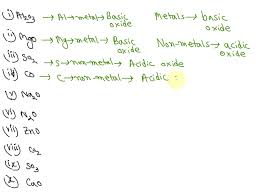 (i) Al₂O₃ → Al → metal → Basic oxide
Metals → basic oxide
(ii) MgO → Mg → metal → Basic oxide
Non-metals → acidic oxide
(iii) SO₂ → S → non-metal → Acidic oxide
(iv) CO → C → non-metal → Acidic
(v) Na₂O
(vi) N₂O
(vii) ZnO
(viii)
(ix) SO₃
(x) CaO